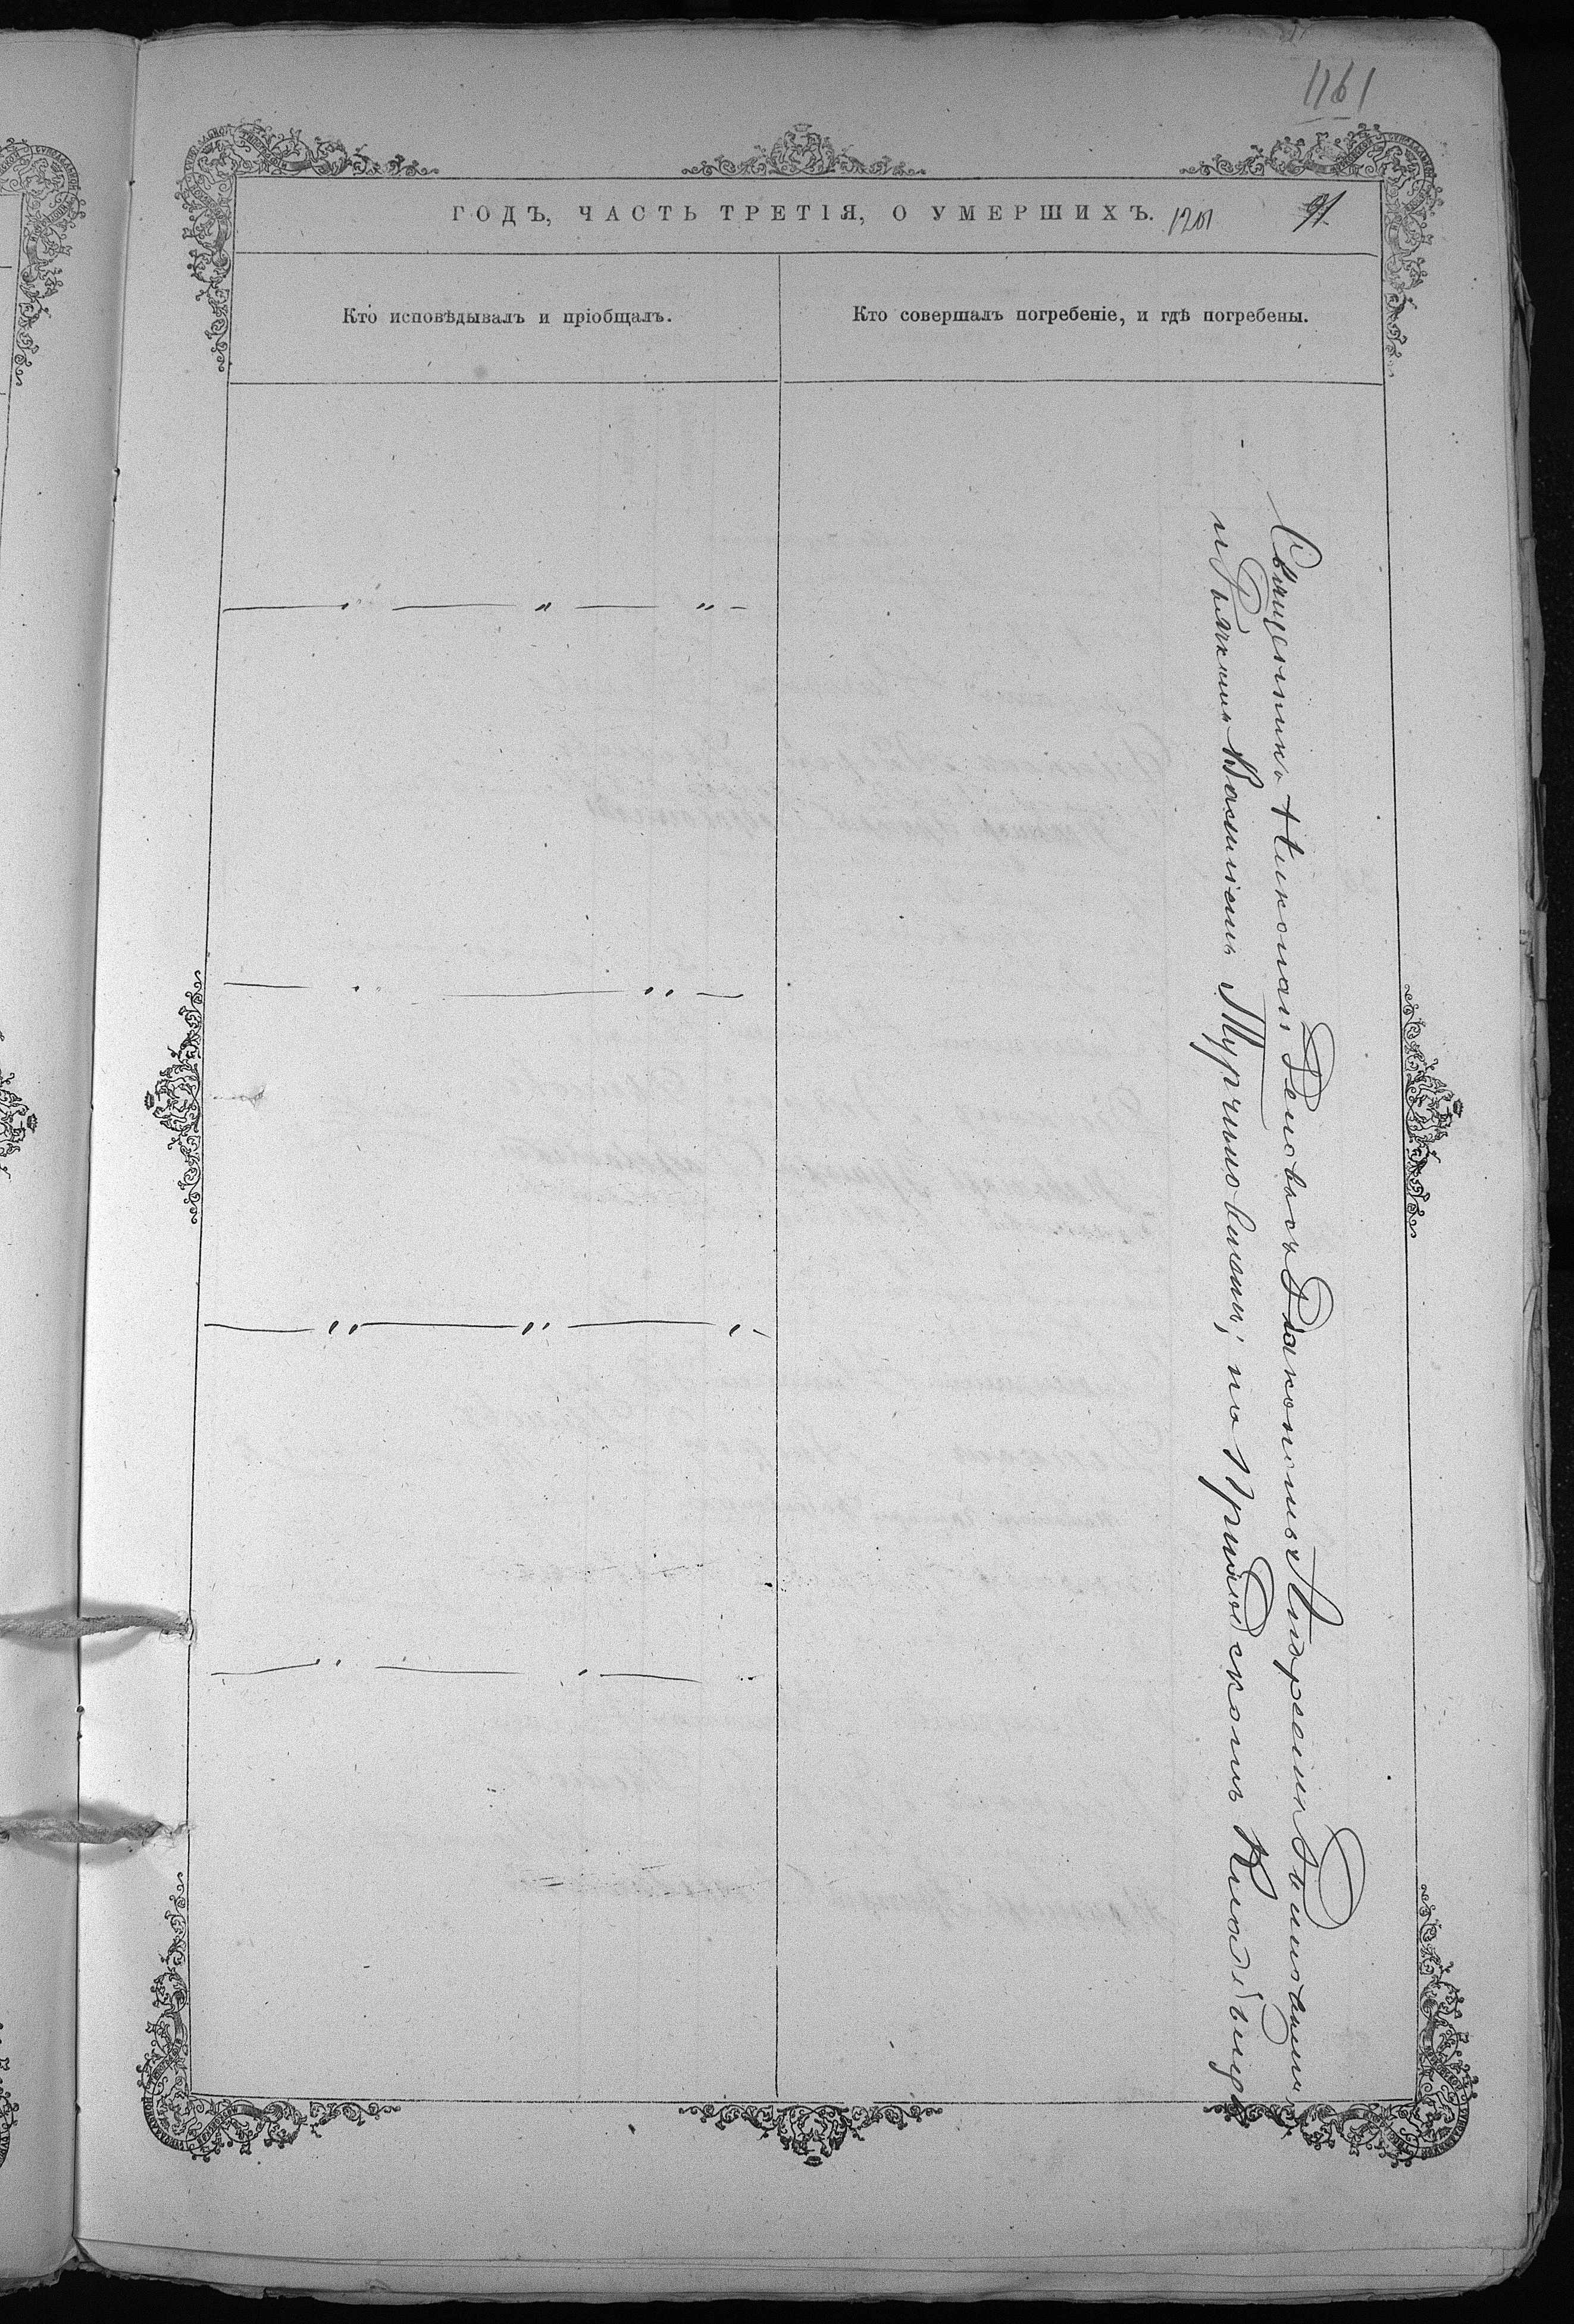 1161
ГОДЪ, ЧАСТЬ ТРЕТІЯ, О УМЕРШИХЪ. 1201 91.
Кто исповѣдывалъ и пріобщалъ.
Кто совершалъ погребеніе, и гдѣ погребены.
Священникъ Николай съ Діакономъ Андреемъ
и Дьячкомъ Василіемъ на Приходскомъ Кладбищѣ